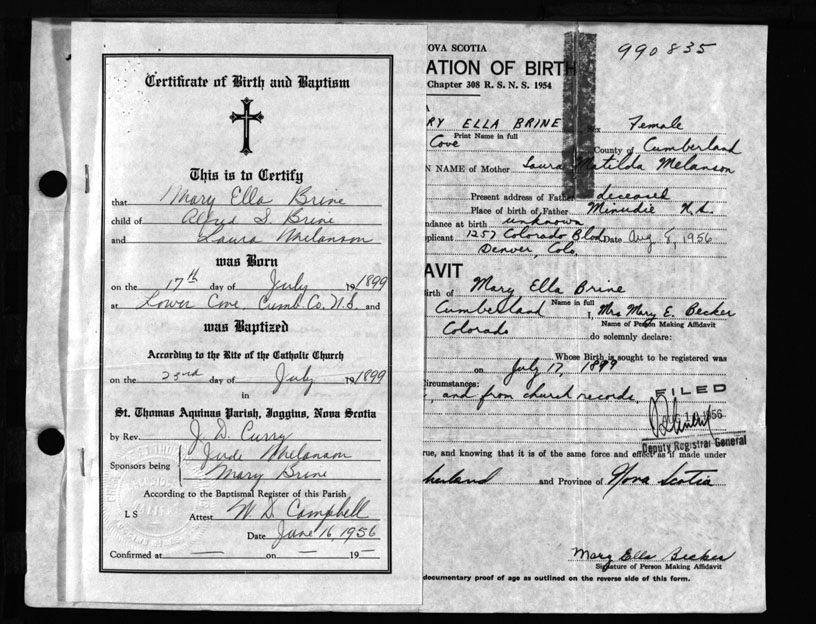 Certificate of Birth and Baptism
This is to Certify
that Mary Ella Brine
child of Alfred S. Brine
and Laura Melanson
was Born
on the 17th day of July 19 1899
at Lower Cove Cumb. Co. N.S. and
was Baptized
According to the Rite of the Catholic Church
on the 23rd day of July 19 1899
in
St. Thomas Aquinas Parish, Joggins, Nova Scotia
by Rev. J. D. Curry
Sponsors being Jude Melanson
Mary Brine
According to the Baptismal Register of this Parish
L S Attest W. D. Campbell
Date June 16, 1956
Confirmed at — on — 19 —
OVA SCOTIA
990835
ATION OF BIRTH
Chapter 308 R. S. N. S. 1954
RY ELLA BRINE Sex Female
Print Name in full
Cove County of Cumberland
N NAME of Mother Laura Matilda Melanson
Present address of Father deceased
Place of birth of Father Minudie N.S.
ndance at birth unknown
plicant 1257 Colorado Blvd Date Aug 8, 1956
Denver, Colo,
AVIT
irth of Mary Ella Brine
Name in full
Cumberland I, Mrs Mary E. Becker
Name of Person Making Affidavit
Colorado do solemnly declare:
Whose Birth is sought to be registered was
on July 17, 1899
ircumstances:
, and from church records,
FILED
1956
Deputy Registrar General
rue, and knowing that it is of the same force and effect as if made under
berland and Province of Nova Scotia
Mary Ella Becker
Signature of Person Making Affidavit
documentary proof of age as outlined on the reverse side of this form.